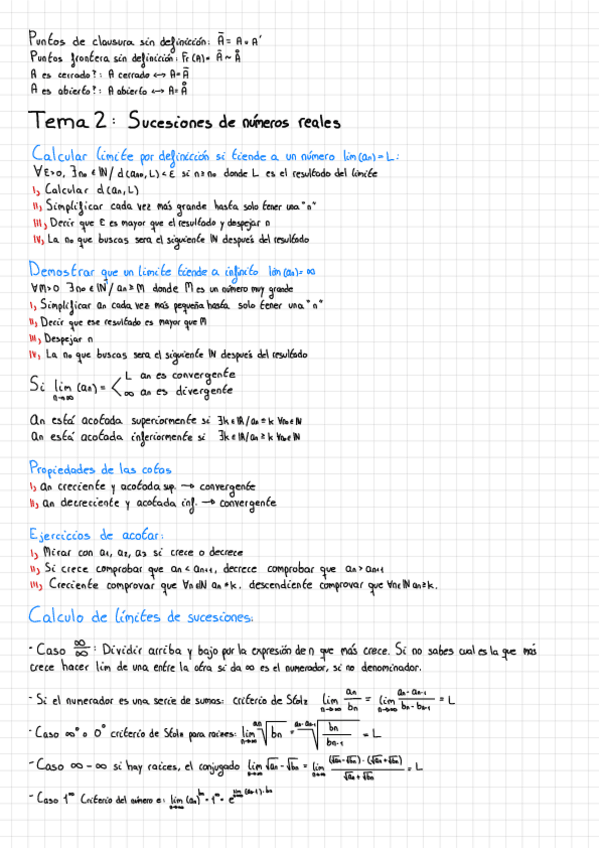 Puntos de clausura sin definición: Ā = A ∪ A'
Puntos frontera sin definición: Fr(A) = Ā ~ Å
A es cerrado?: A cerrado ↔ A=Ā
A es abierto?: A abierto ↔ A=Å
Tema 2: Sucesiones de números reales
Calcular limite por definición si tiende a un número lim(an)=L:
∀ε>0, ∃n₀ ∈ ℕ / d(an, L) < ε si n≥n₀ donde L es el resultado del limite
I, Calcular d(an, L)
II, Simplificar cada vez más grande hasta solo tener una "n"
III, Decir que ε es mayor que el resultado y despejar n
IV, La n₀ que buscas sera el siguiente ℕ después del resultado
Demostrar que un limite tiende a infinito lim(an)=∞
∀M>0 ∃n₀ ∈ ℕ / an ≥ M donde M es un número muy grande
I, Simplificar an cada vez más pequeña hasta solo tener una "n"
II, Decir que ese resultado es mayor que M
III, Despejar n
IV, La n₀ que buscas sera el siguiente ℕ después del resultado
Si lim n→∞ (an) = < L an es convergente
∞ an es divergente
An está acotada superiormente si ∃k ∈ ℝ / an ≤ k ∀n ∈ ℕ
An está acotada inferiormente si ∃k ∈ ℝ / an ≥ k ∀n ∈ ℕ
Propiedades de las cotas
I, an creciente y acotada sup. → convergente
II, an decreciente y acotada inf. → convergente
Ejercicios de acotar:
I, Mirar con a₁, a₂, a₃ si crece o decrece
II, Si crece comprobar que an < an+1, decrece comprobar que an > an+1
III, Creciente comprovar que ∀n∈ℕ an ≤ k, descendiente comprovar que ∀n∈ℕ an ≥ k.
Calculo de límites de sucesiones:
- Caso ∞/∞: Dividir arriba y bajo por la expresión de n que más crece. Si no sabes cual es la que más
crece hacer lim de una entre la otra si da ∞ es el numerador, si no denominador.
- Si el numerador es una serie de sumas: criterio de Stolz lim n→∞ an/bn = lim n→∞ (an - an-1)/(bn - bn-1) = L
- Caso ∞⁰ o 0⁰ criterio de Stolz para raices: lim n→∞ ᵃⁿ√bn = ᵃⁿ⁻ᵃⁿ⁻¹√(bn/bn-1) = L
- Caso ∞-∞ si hay raices, el conjugado lim n→∞ √an - √bn = lim n→∞ (√an - √bn)·(√an + √bn)/(√an + √bn) = L
- Caso 1^∞ Criterio del número e: lim n→∞ (an)^bn = 1^∞ = e^(lim n→∞ (an-1)·bn)